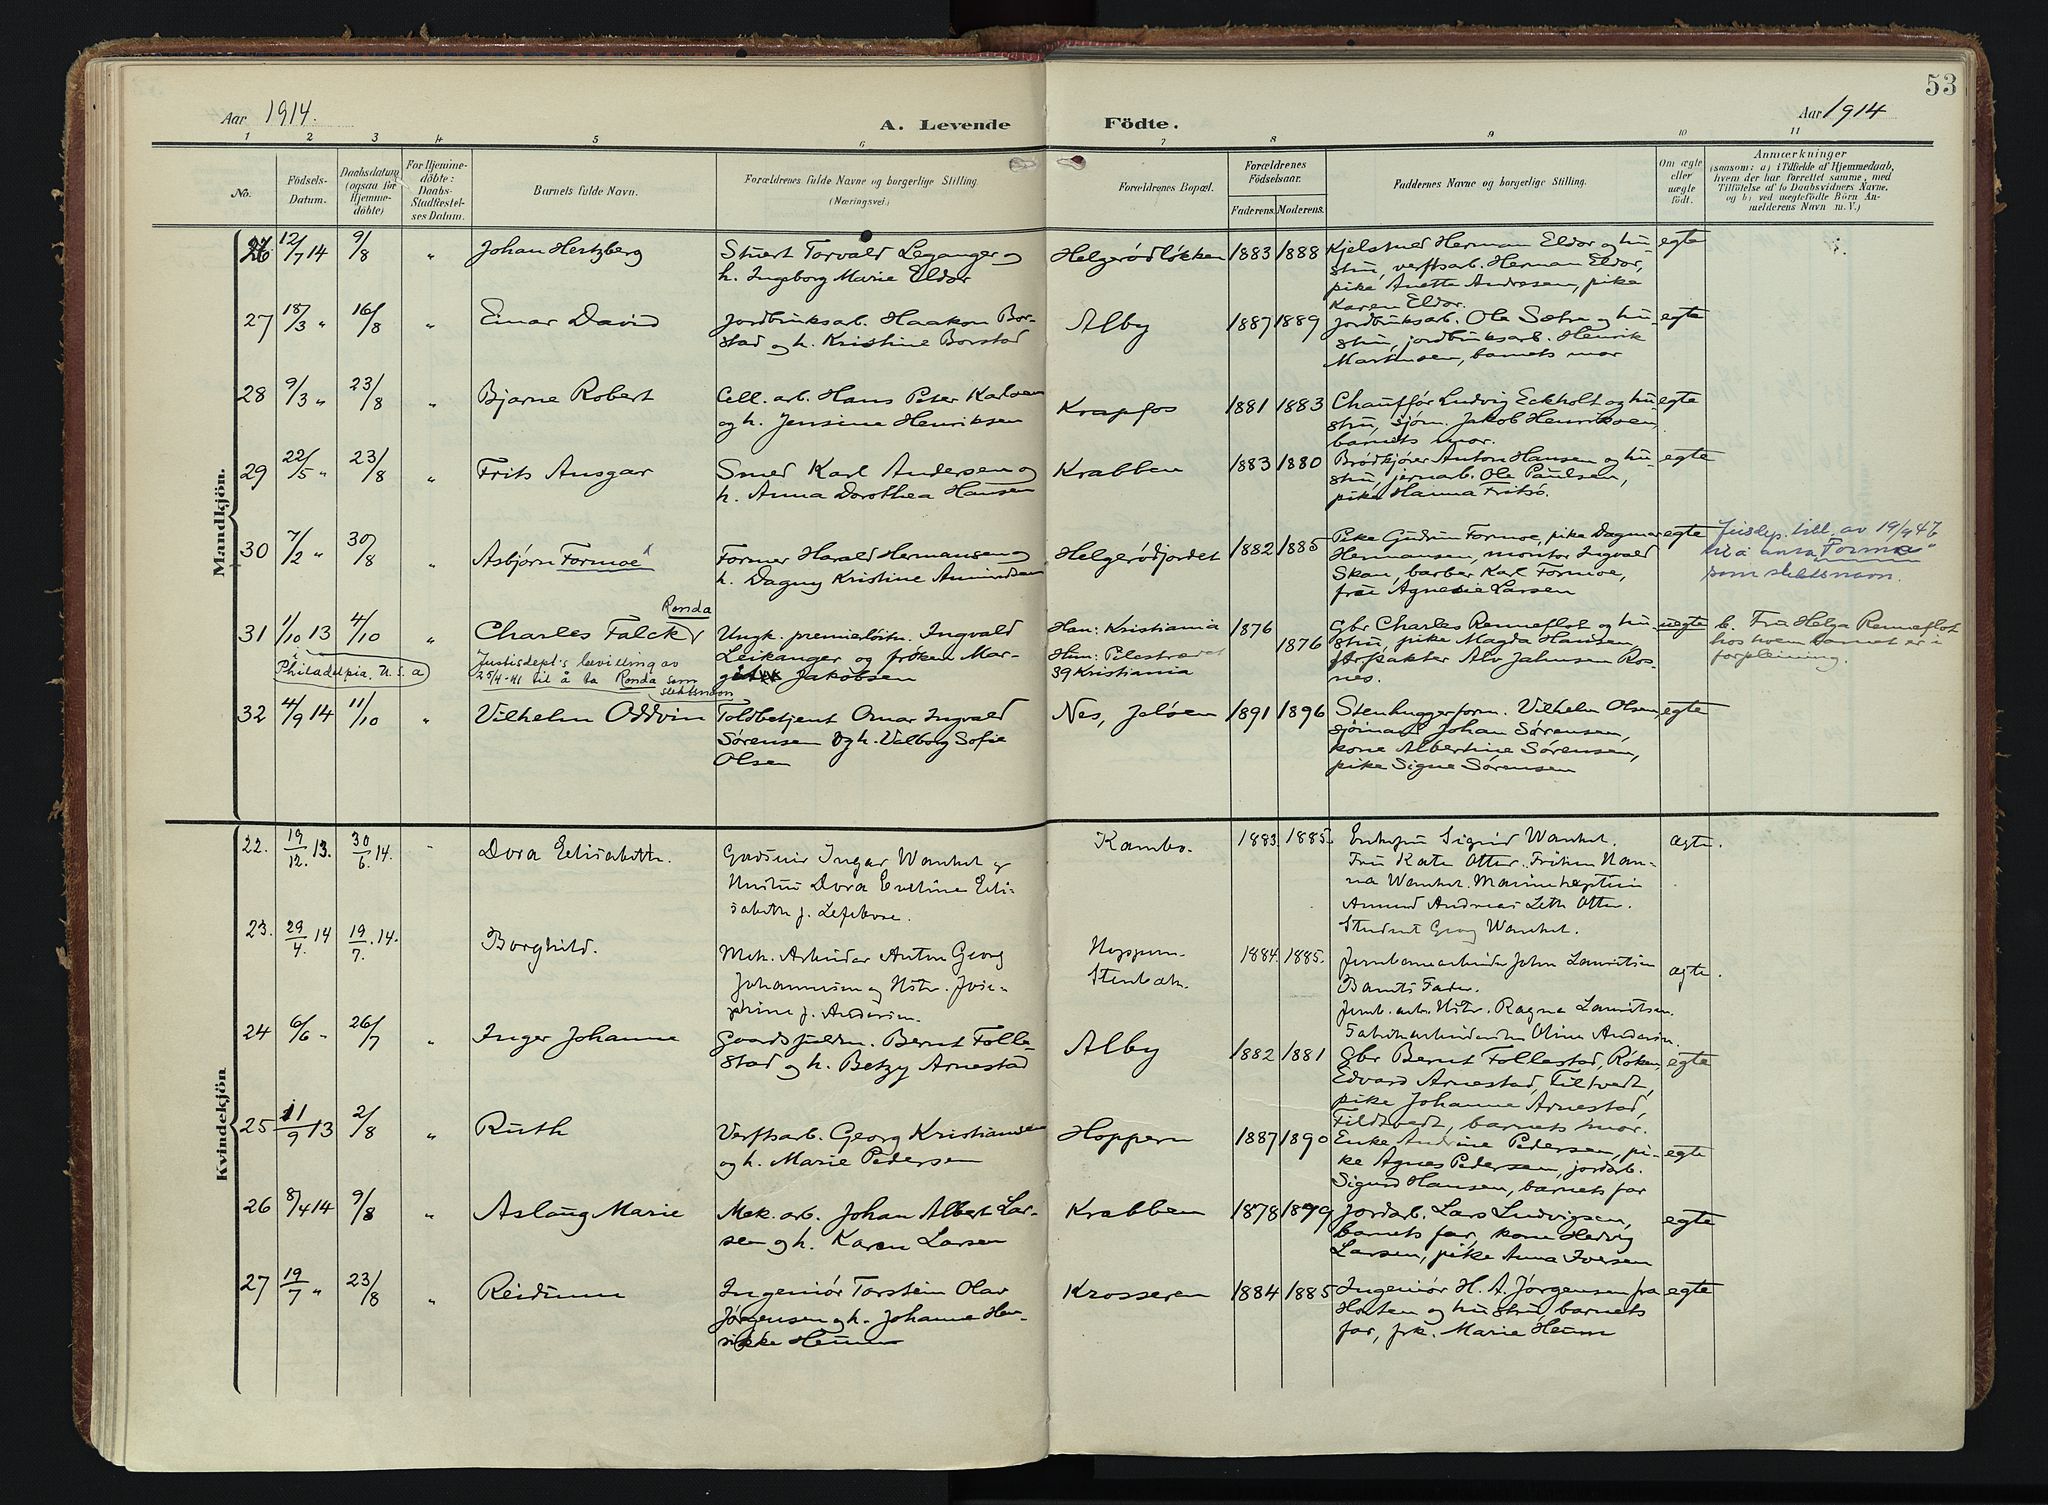 53
Aar 1914.
A. Levende Födte.
Aar 1914
1 2 3 4 5 6 7 8 9 10 11
No.
Födsels-Datum.
Daabsdatum (ogsaa for Hjemme-döbte)
For Hjemme-döbte: Daabs-Stadfæstel-ses Datum.
Barnets fulde Navn.
Forældrenes fulde Navne og borgerlige Stilling.
(Næringsvei.)
Forældrenes Bopæl.
Forældrenes Födselsaar.
Faderens. Moderens.
Faddernes Navne og borgerlige Stilling.
Om ægte eller uægte födt.
Anmærkninger
(saasom: a) i Tilfælde af Hjemmedaab,
hvem der har forrettet samme, med
Tilföielse af to Daabsvidners Navne,
og b) ved uægtefödte Börn An-
melderens Navn m. V.)
Mandkjön.
26 12/7 14 9/8 " Johan Hertzberg
Stuert Torvald Leganger og
h. Ingeborg Marie Eldor
Helgerødløkken 1883 1888
Kjelsmed Herman Eldor og hu-
stru, verftsarb. Herman Eldor,
pike Anette Andresen, pike
Karen Eldor.
egte
27 18/3 " 16/8 " Einar David
Jordbruksarb. Haakon Bor-
stad og h. Kristine Borstad
Alby 1887 1889
Jordbruksarb. Ole Sætre og hu-
stru, jordbruksarb. Henrik
Martinsen, barnets mor
egte
28 9/3 " 23/8 " Bjarne Robert
Cell. arb. Hans Peter Karlsen
og h. Jensine Henriksen
Krapfos 1881 1883
Chauffør Ludvig Eckholt og hu-
stru, sjøm. Jakob Henriksen,
barnets mor.
egte
29 22/5 " 23/8 " Frits Ansgar
Smed Karl Andersen og
h. Anna Dorothea Hansen
Krabben 1883 1880
Brødkjører Anton Hansen og hu-
stru, jernarb. Ole Paulsen,
pike Hanna Fritsø.
egte
30 7/2 " 30/8 " Asbjørn Formoe
Former Harald Hermansen og
h. Dagny Kristine Amundsen
Helgerødjordet 1882 1885
Pike Gudrun Formoe, pike Dagmar
Hermansen, montør Ingvald
Skau, barber Karl Formoe,
frøi Agnesie Larsen
egte
Jusdep. till. av 19/9 47
til å anta "Formoe"
som slektsnavn.
31 1/10 13 4/10 " Charles Falck Ronda
Philadelpia. U. S. a
Justisdept's bevilling av
25/4-41 til å ta Ronda som
slektsnavn
Ungk. premierløitn. Ingvald
Leikanger og frøken Mar-
Jakobsen
Han: Kristiania
Hun: Pilestrædet
39 Kristiania
1876 1876
Gbr Charles Renneflot og hu-
stru, pike Magda Hansen,
forpakter Alv Jahnsen Ros-
nes.
uegte
b. Fru Helga Renneflot
hos hvem barnet er i
forpleining.
32 4/9 14 11/10 " Vilhelm Oddvin
Toldbetjent Omar Ingvald
Sørensen og h. Valborg Sofie
Olsen
Nes, Jeløen 1891 1896
Stenhuggerform. Vilhelm Olsen,
sjømand Johan Sørensen,
kone Albertine Sørensen,
pike Signe Sørensen
egte
Kvindekjön
22. 19/12 13. 30/6 14. " Dora Elisabeth.
Ingar Wankel og
Hustru Dora Eveline Eli-
sabeth f. Lefebvre.
Kambo. 1883 1885.
Enkefru Sigrid Wankel.
Fru Kate Otter. Frøken Nan-
na Wankel. Marinekaptein
Amund Andreas Leth Otter.
Student Georg Wankel.
ægte.
23. 29/4 14 19/7 14. Borghild.
Mek. Arbeider Anton Georg
Johannesen og Hstr. Jose-
phine f. Andersen.
Hoppern.
Stenbæk.
1884 1885.
Jernbanearbeider John Lauritsen
Barnets Fader.
Jernb. arb. Hstr. Ragna Lauritsen.
Fabrikarbeiderske Olina Andersen.
ægte.
24 6/6 " 26/7 " Inger Johanne
Gaardsfuldm. Bernt Folle-
stad og h. Betzy Arnestad
Alby 1882 1881
Gbr Bernt Follestad, Røken,
Edvard Arnestad, Filtvedt,
pike Johanne Arnestad,
Fildtvedt, barnets mor.
egte
25 11/9 13 2/8 " Ruth
Verftsarb. Georg Kristiansen
og h. Marie Pedersen
Hoppern 1887 1890
Enke Andrine Pedersen, pi-
ke Agnes Pedersen, jordarb.
Sigurd Hansen, barnets far
egte
26 8/4 14 9/8 " Aslaug Marie
Mek. arb. Johan Albert Lar-
sen og h. Karen Larsen
Krabben 1878 1879
Jordarb. Lars Ludvigsen,
barnets far, kone Hedvig
Larsen, pike Anna Iversen
egte
27 19/7 " 23/8 " Reidunn
Ingeniør Torstein Olav
Jørgensen og h. Johanne Hen-
rikke Heum
Krosseren 1884 1885
Ingeniør H. A. Jørgensen fra
Holten og hustru, barnets
far, frk. Marie Heum
egte